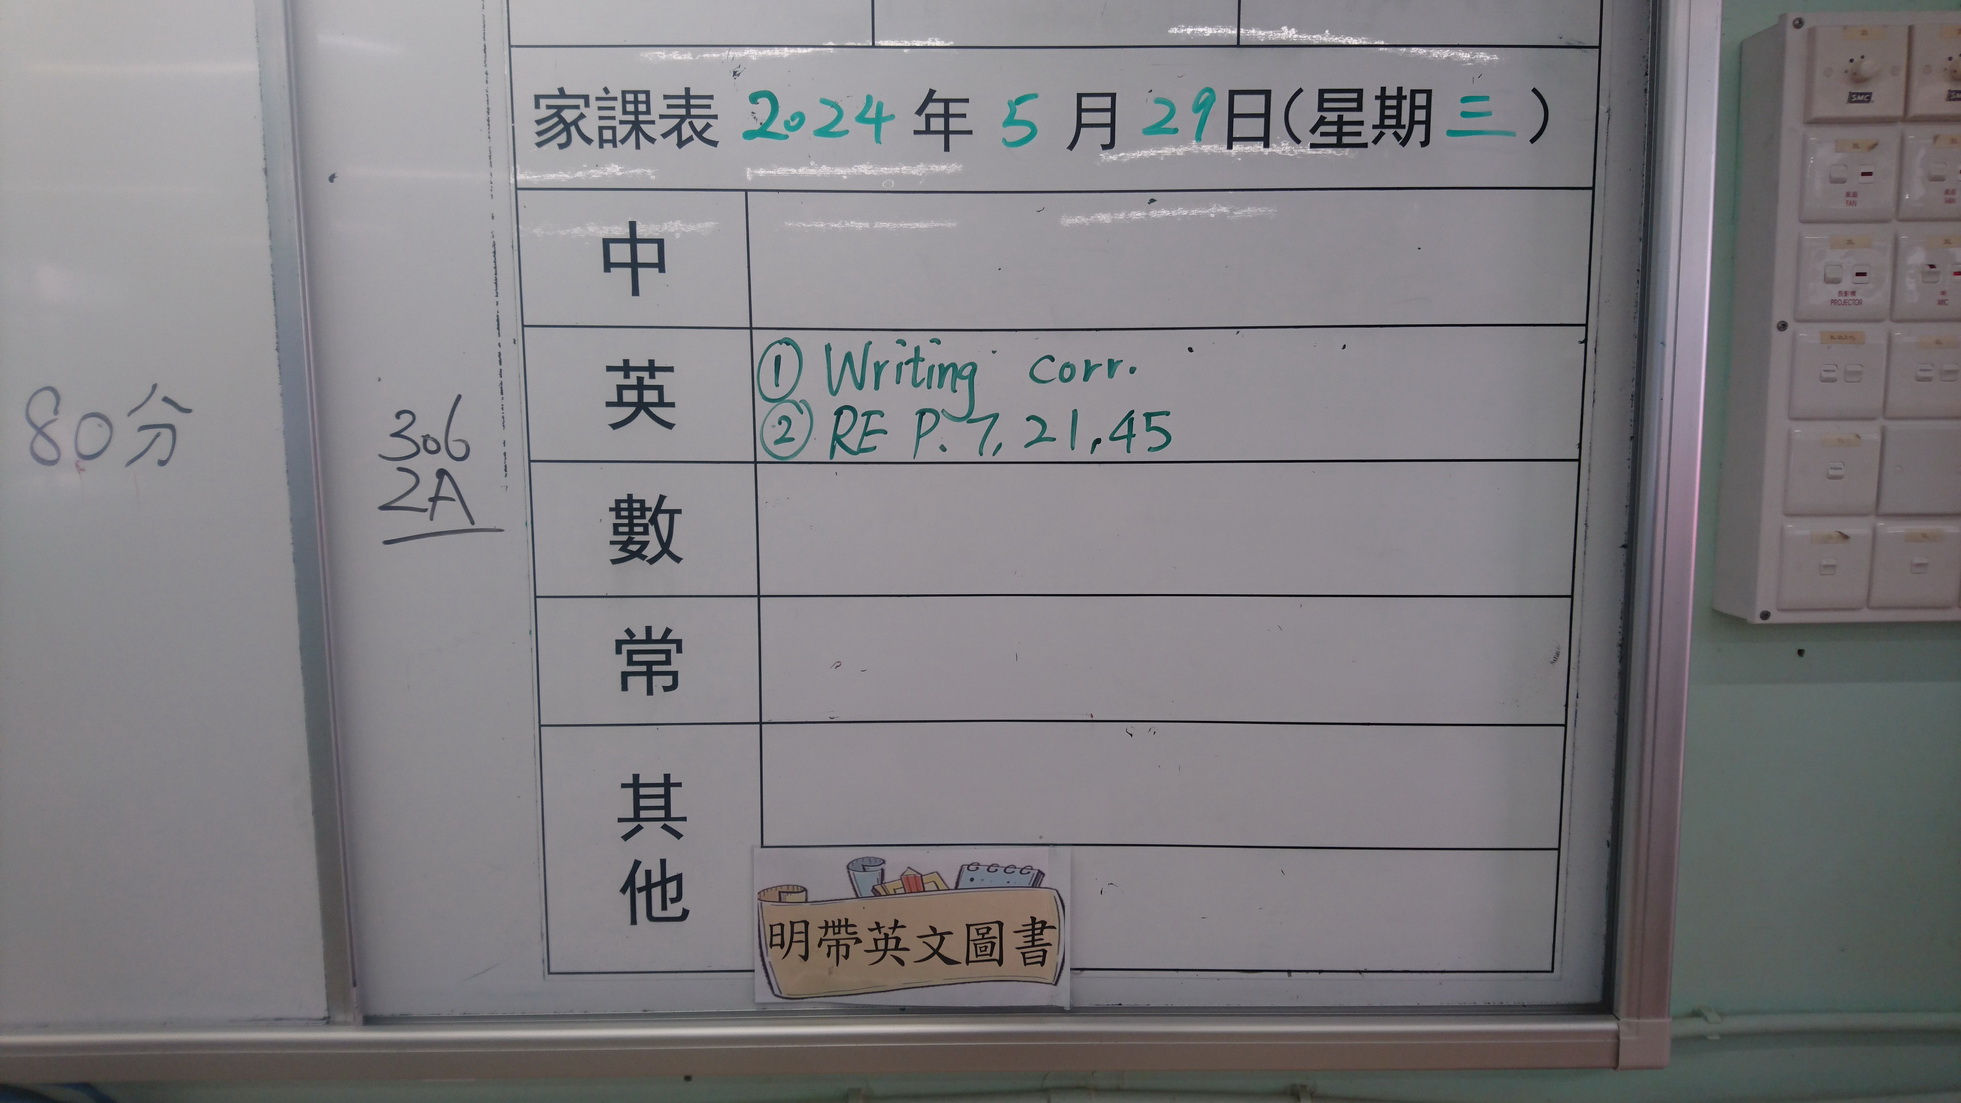 80分
306
2A
家課表 2024 年 5 月 29 日(星期 三)
中
英
① Writing corr.
② RE P. 7, 21, 45
數
常
其
他
明帶英文圖書
SMC
FAN
FAN
PROJECTOR